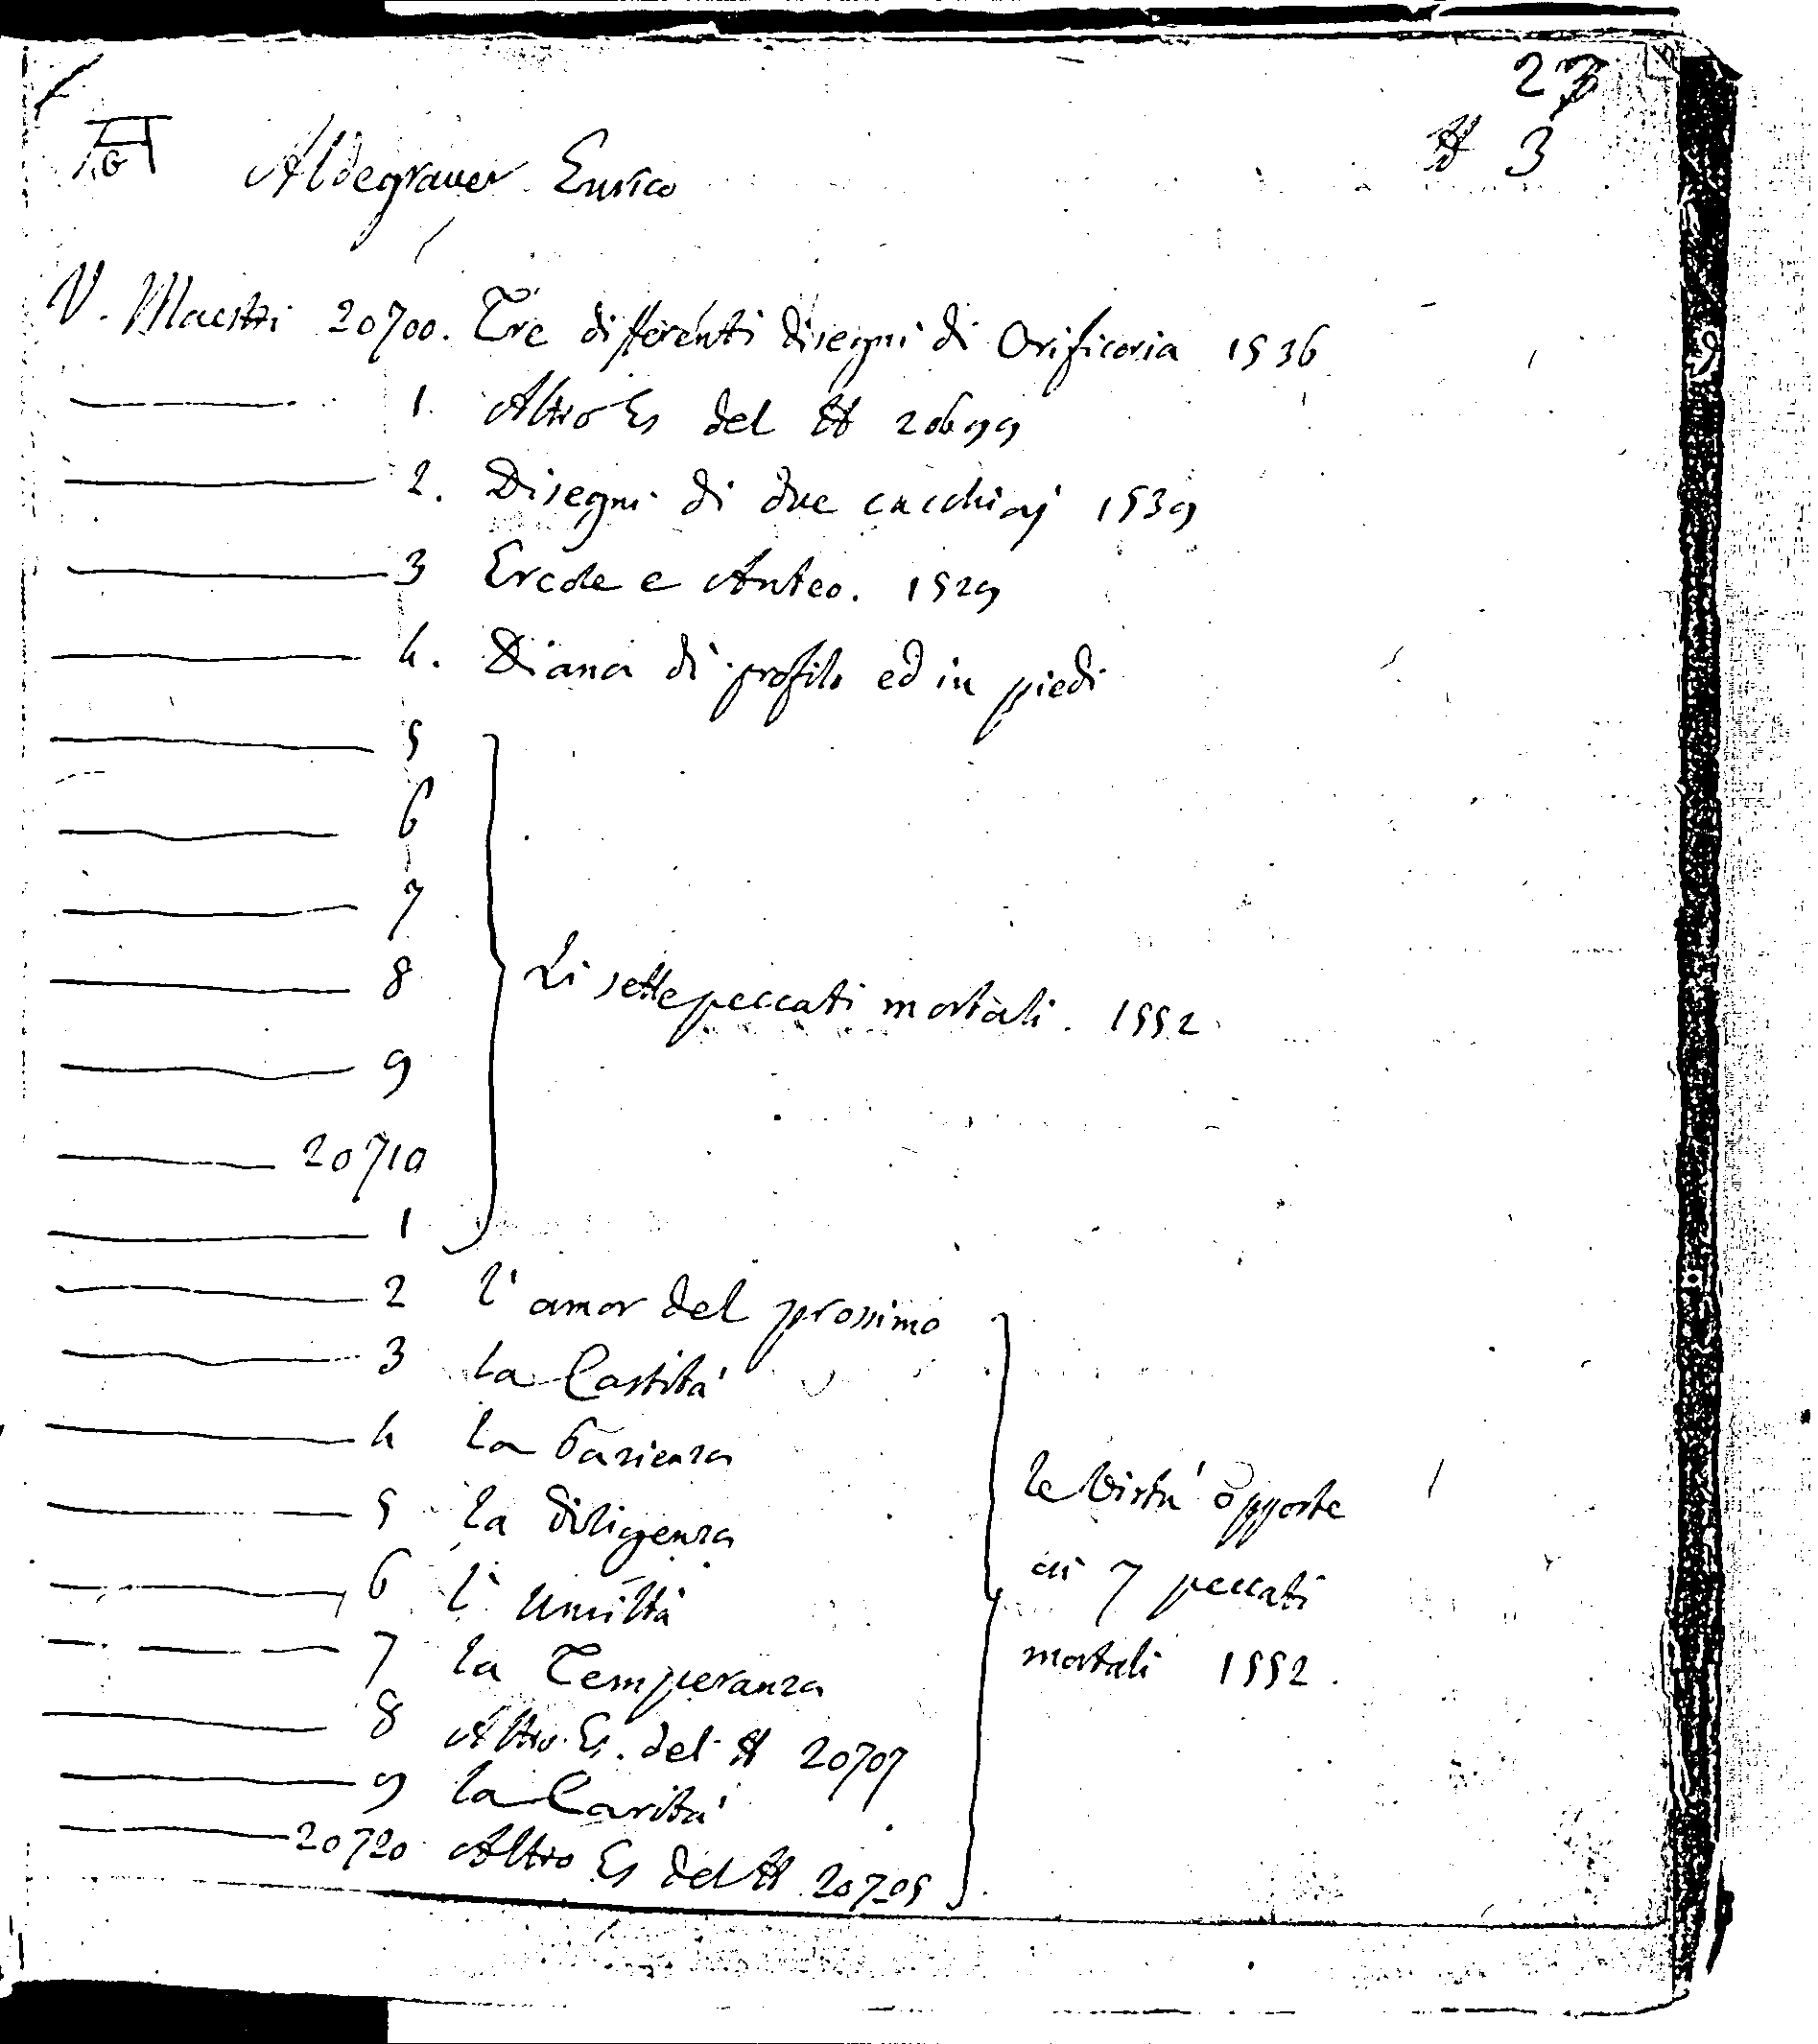 23
AG Aldegraver Enrico N 3
V. Maestri 20700. Tre differenti disegni di Orificeria 1536
1. Altro Es del N 20699
2. Disegni di due cucchiaj 1539
3 Ercole e Anteo. 1529
4. Diana di profilo ed in piedi
5
6
7
8 Li sette peccati mortali. 1552
9
20710
1
2 l'amor del prossimo
3 la Castità
4 la Pazienza
5 la diligenza le Virtù opposte
6 l'umiltà ai 7 peccati
7 la Temperanza mortali 1552.
8 Altro Es. del N 20707
9 la Carità
20720 Altro Es del N 20705